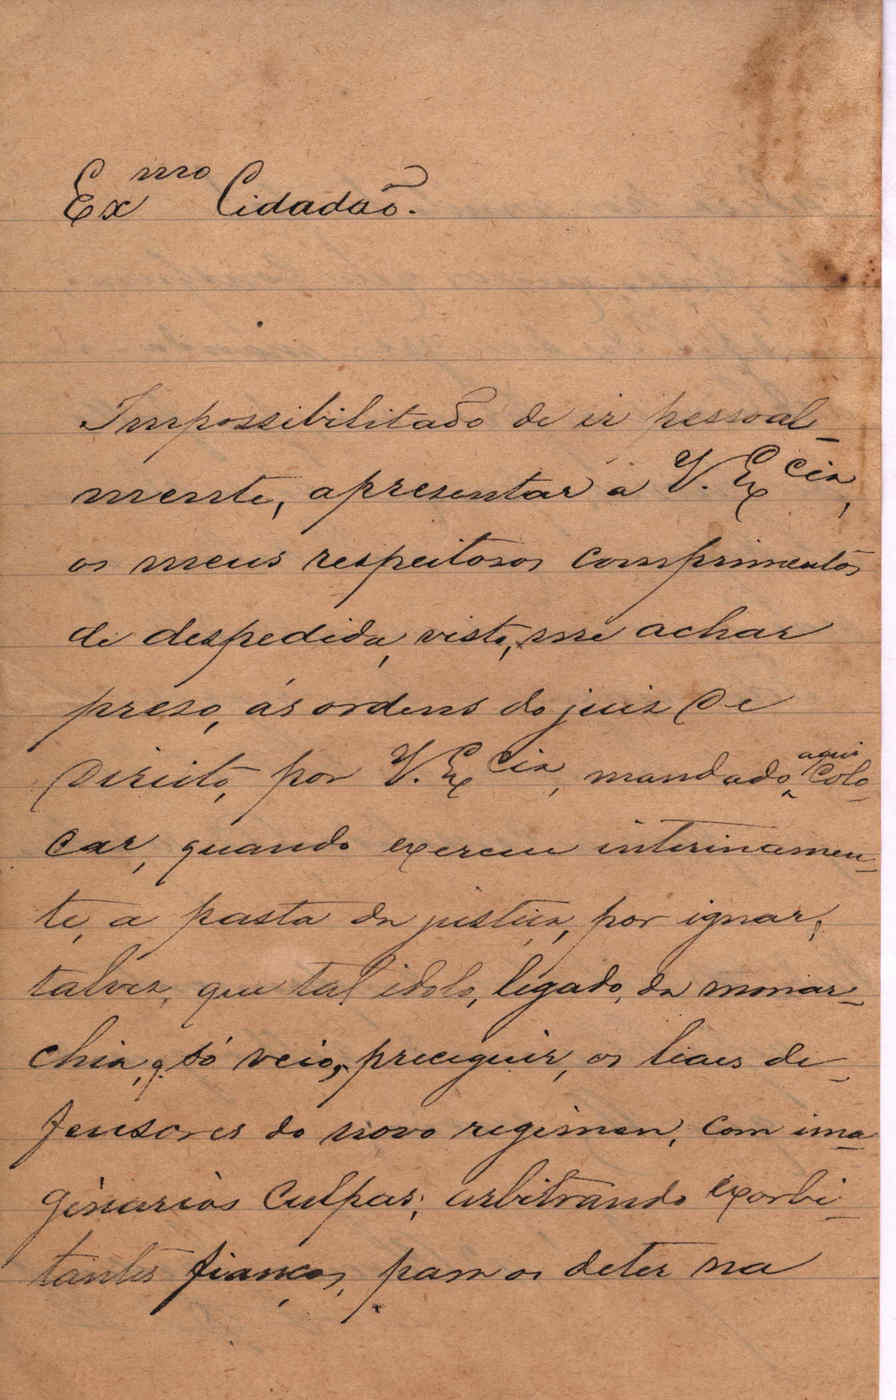 Exmo Cidadão.
Impossibilitado de ir pessoal-
mente, apresentar a V. Excia,
os meus respeitosos comprimentos
de despedida, visto, me achar
preso, ás ordens do juiz de
Direito, por V. Excia, mandado, aqui colo-
car, quando exerceu interinamen-
te, a pasta da justiça, por ignar,
talvez, que tal idolo, legado, da monar-
chia, q. só veio, preceguir, os liaes de-
fensores do novo regimen, com ima-
ginarios culpas; arbitrando exorbi-
tantes fianças, para os deter na